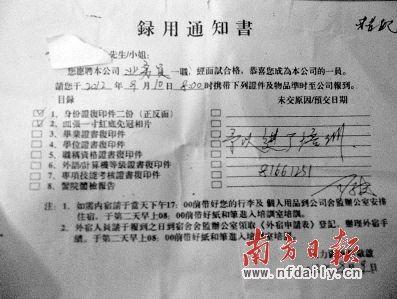 録用通知書
先生/小姐:
您應聘本公司 業務員 一職，經面試合格，恭喜您成為本公司的一員。
請您于 2012 年 9 月 10 日 8:00 時携帶下列證件及物品準時至公司報到。
目録 未交原因/預交日期
1. 身份證復印件二份（正反面）
2. 兩張一寸紅底免冠相片
3. 畢業證書復印件
4. 學位證書復印件
5. 職稱資格證書復印件
6. 外語/計算機等級證書復印件
7. 專項技能考核證書復印件
8. 醫院體檢報告
予以進了培訓
81661251
注: 1. 如需内宿請于當天下午17: 00前帶好您的行李及個人用品到公司舍監辦公室安排
住宿，于第二天早上08: 00前帶好紙和筆進入培訓室培訓。
2. 外宿人員請于報到之日到宿舍舍監辦公室領取《外宿申請表》登記，辦理外宿手
續。于第二天早上08: 00前帶好紙和筆進入培訓室培訓。
南方日報
www.nfdaily.cn